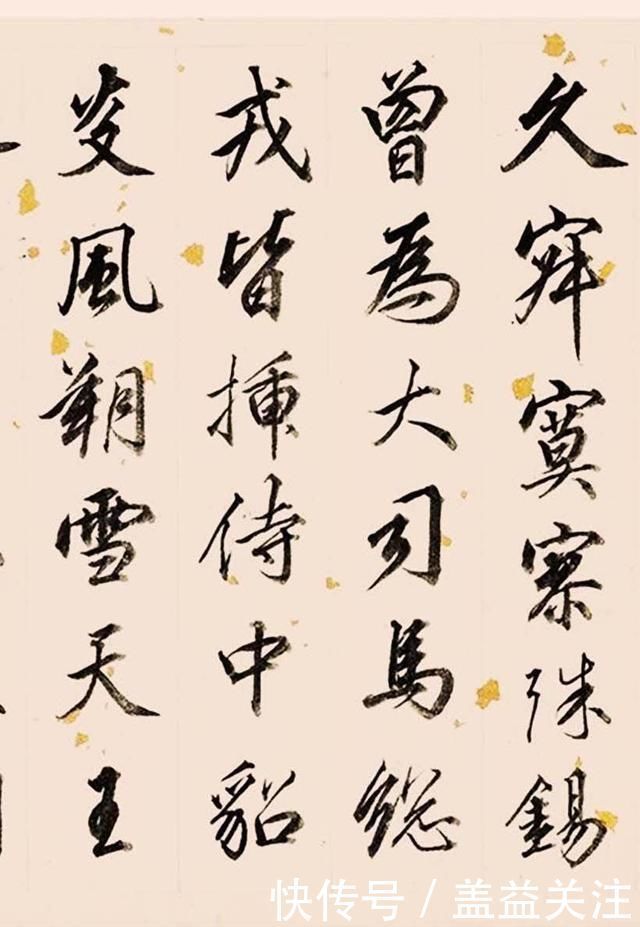 久寂寞寥殊錫
曾為大司馬総
戎皆插侍中貂
炎風朔雪天王
快传号/盖益关注